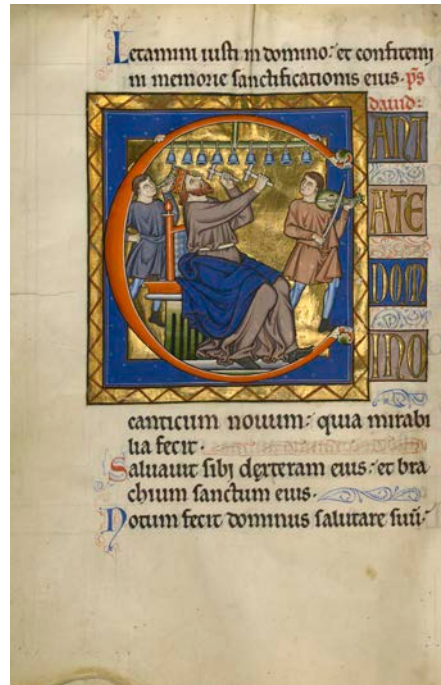 Letamini iusti in domino: et confitemi
ni memorie sanctificationis eius. ps
dauid:
ANT
ATE
DOM
INO
canticum nouum: quia mirabi
lia fecit.
Saluauit sibi dextera eius: et bra
chium sanctum eius.
Notum fecit dominus salutare suu: